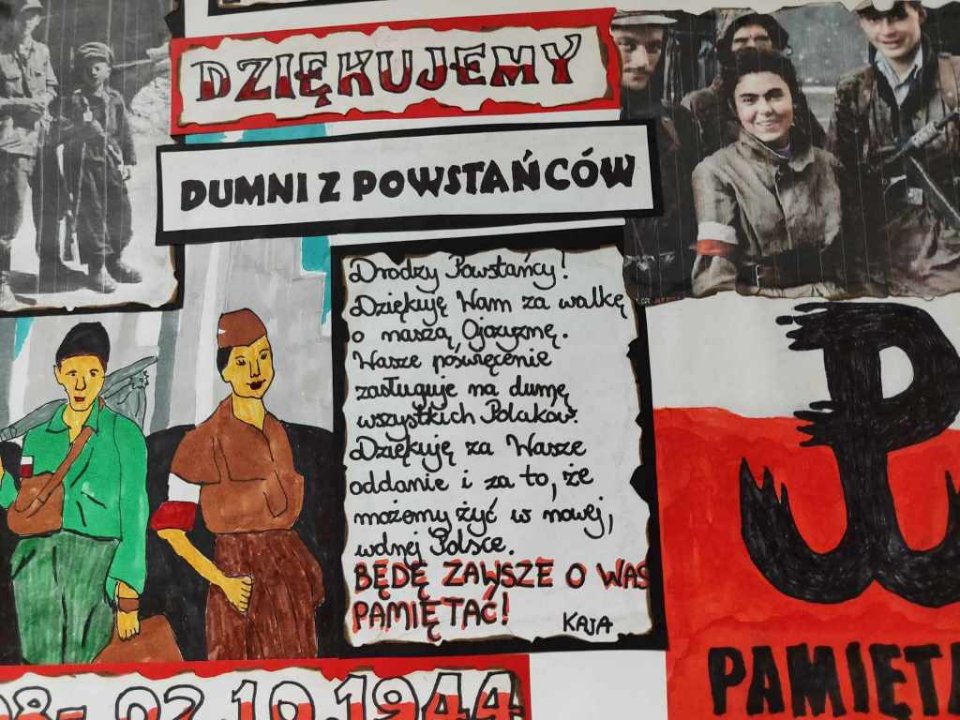 DZIĘKUJEMY
DUMNI Z POWSTAŃCÓW
Drodzy Powstańcy!
Dziękuję Wam za walkę
o naszą Ojczyznę.
Wasze poświęcenie
zasługuje na dumę
wszystkich Polaków.
Dziękuję za Wasze
oddanie i za to, że
możemy żyć w nowej,
wolnej Polsce.
BĘDĘ ZAWSZE O WAS
PAMIĘTAĆ!
KAJA
PAMIĘTA
08-02.10.1944